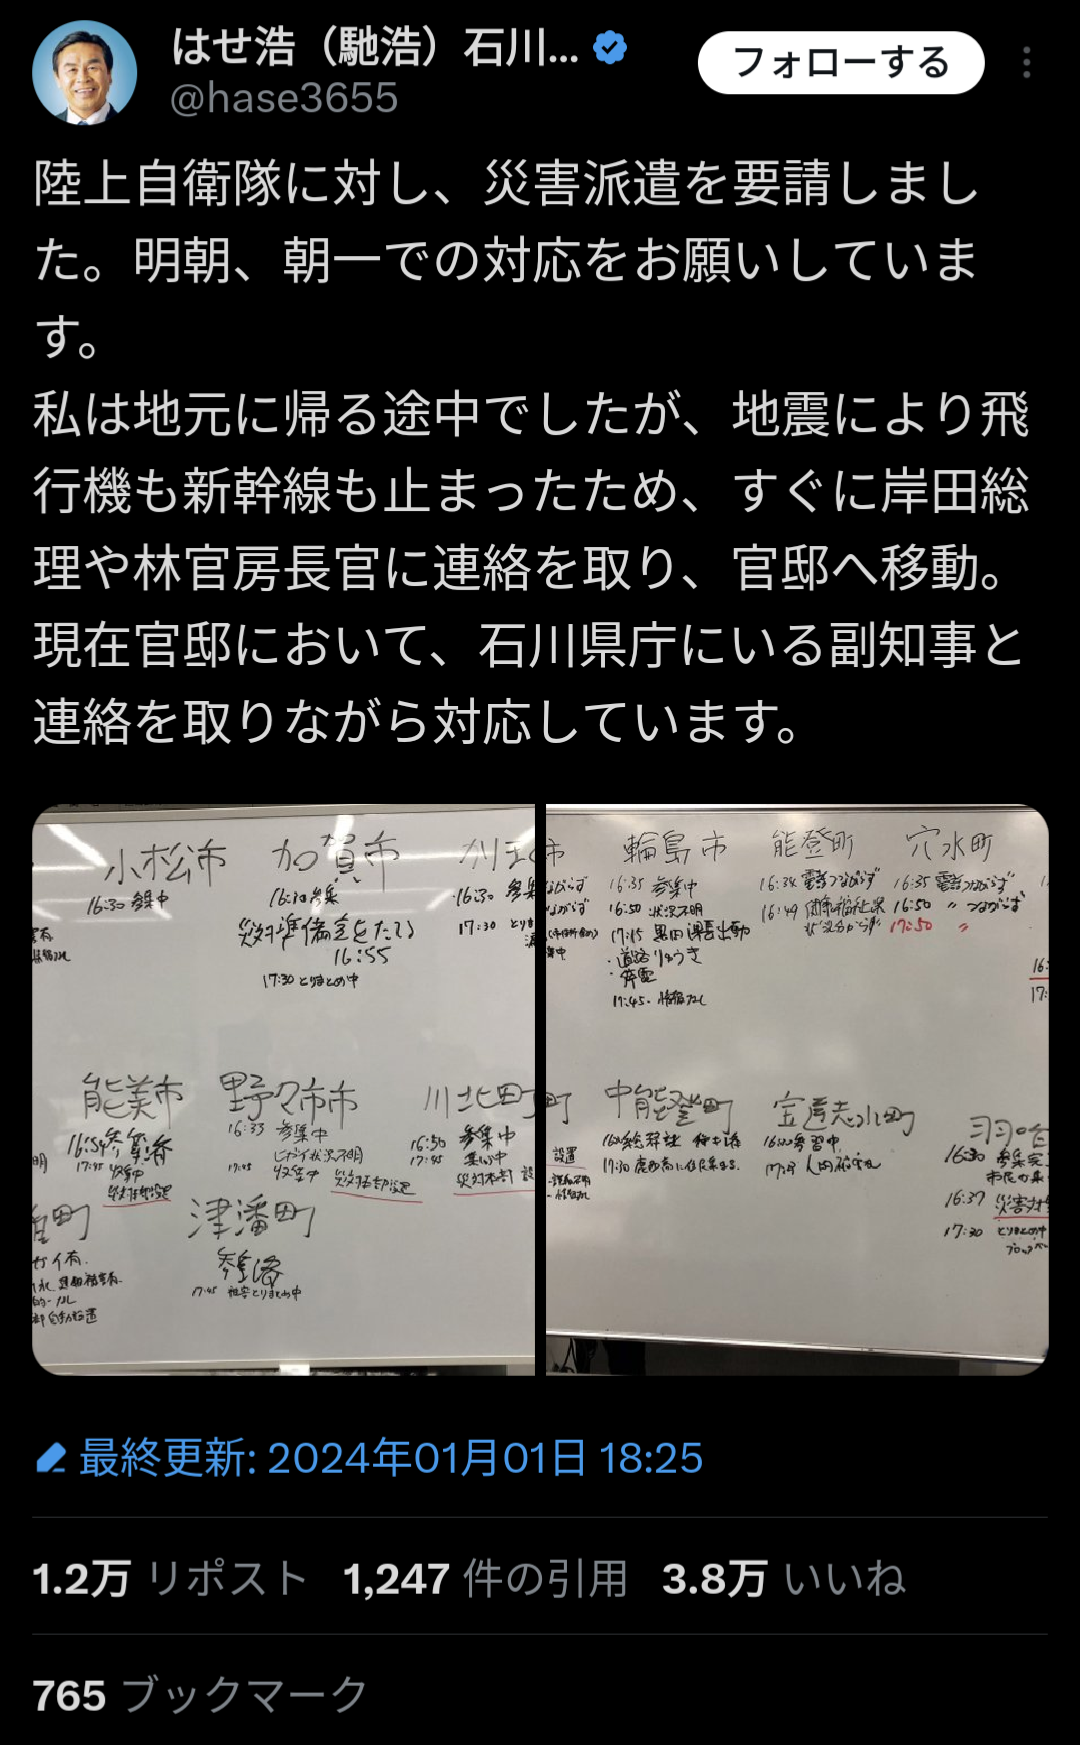 はせ浩（馳浩）石川...
フォローする
@hase3655
陸上自衛隊に対し、災害派遣を要請しまし
た。明朝、朝一での対応をお願いしていま
す。
私は地元に帰る途中でしたが、地震により飛
行機も新幹線も止まったため、すぐに岸田総
理や林官房長官に連絡を取り、官邸へ移動。
現在官邸において、石川県庁にいる副知事と
連絡を取りながら対応しています。
小松市
16:30 参集中
加賀市
16:30 参集
災対準備室をたてる
16:55
17:30 とりまとめ中
16:30 参集
17:30
能美市
16:54
17:45
野々市市
16:33 参集中
17:45
収集中
川北町
16:30 参集中
17:45
津潘町
17:45
輪島市
16:35 参集中
16:50 状況不明
17:15 黒田課長出動
・道路りゅうき
・停電
17:45. 情報なし
能登町
16:34 電話つながらず
16:49
穴水町
16:35 電話つながらず
16:50 〃 つながらず
17:50 〃
中能登町
17:30
宝達志水町
羽咋
16:30
16:37 災害対
17:30 とりまとめ中
最終更新: 2024年01月01日 18:25
1.2万 リポスト 1,247 件の引用 3.8万 いいね
765 ブックマーク